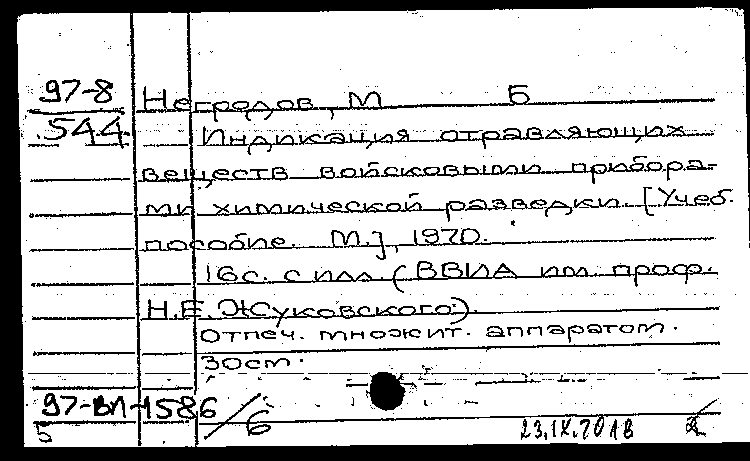 97-8 Негродов, М Б
544 Индикация отравляющих
веществ войсковыми прибора-
ми химической разведки. [Учеб.
пособие. М.], 1970.
16с. с илл. (ВВИА им. проф.
Н.Е. Жуковского).
Отпеч. множит. аппаратом.
30см.
97-ВЛ-1586/6
5 23.IX.70 18